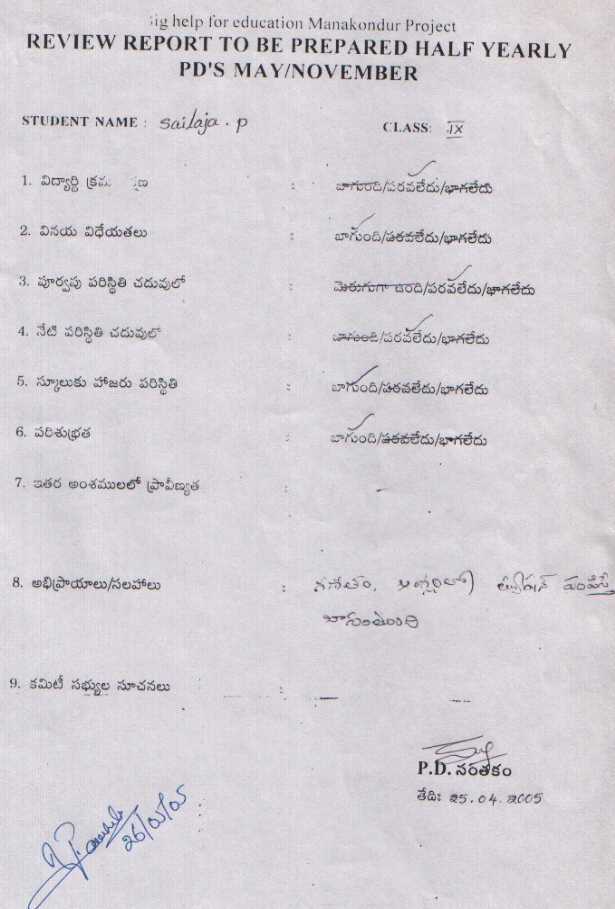 Big help for education Manakondur Project
REVIEW REPORT TO BE PREPARED HALF YEARLY
PD'S MAY/NOVEMBER
STUDENT NAME : Sailaja . P CLASS: IX
1. విద్యార్థి క్రమ : బాగుంది/పరవలేదు/భాగలేదు
2. వినయ విధేయతలు : బాగుంది/పరవలేదు/భాగలేదు
3. పూర్వపు పరిస్థితి చదువులో : మెరుగుగా ఉంది/పరవలేదు/భాగలేదు
4. నేటి పరిస్థితి చదువులో : బాగుంది/పరవలేదు/భాగలేదు
5. స్కూలుకు హాజరు పరిస్థితి : బాగుంది/పరవలేదు/భాగలేదు
6. పరిశుభ్రత : బాగుంది/పరవలేదు/భాగలేదు
7. ఇతర అంశములలో ప్రావీణ్యత : -
8. అభిప్రాయాలు/సలహాలు : గణితం, ట్యూషన్
బాగుంటుంది
9. కమిటీ సభ్యుల సూచనలు :
P.D. సంతకం
తేది: 25.04.2005
26/05/05